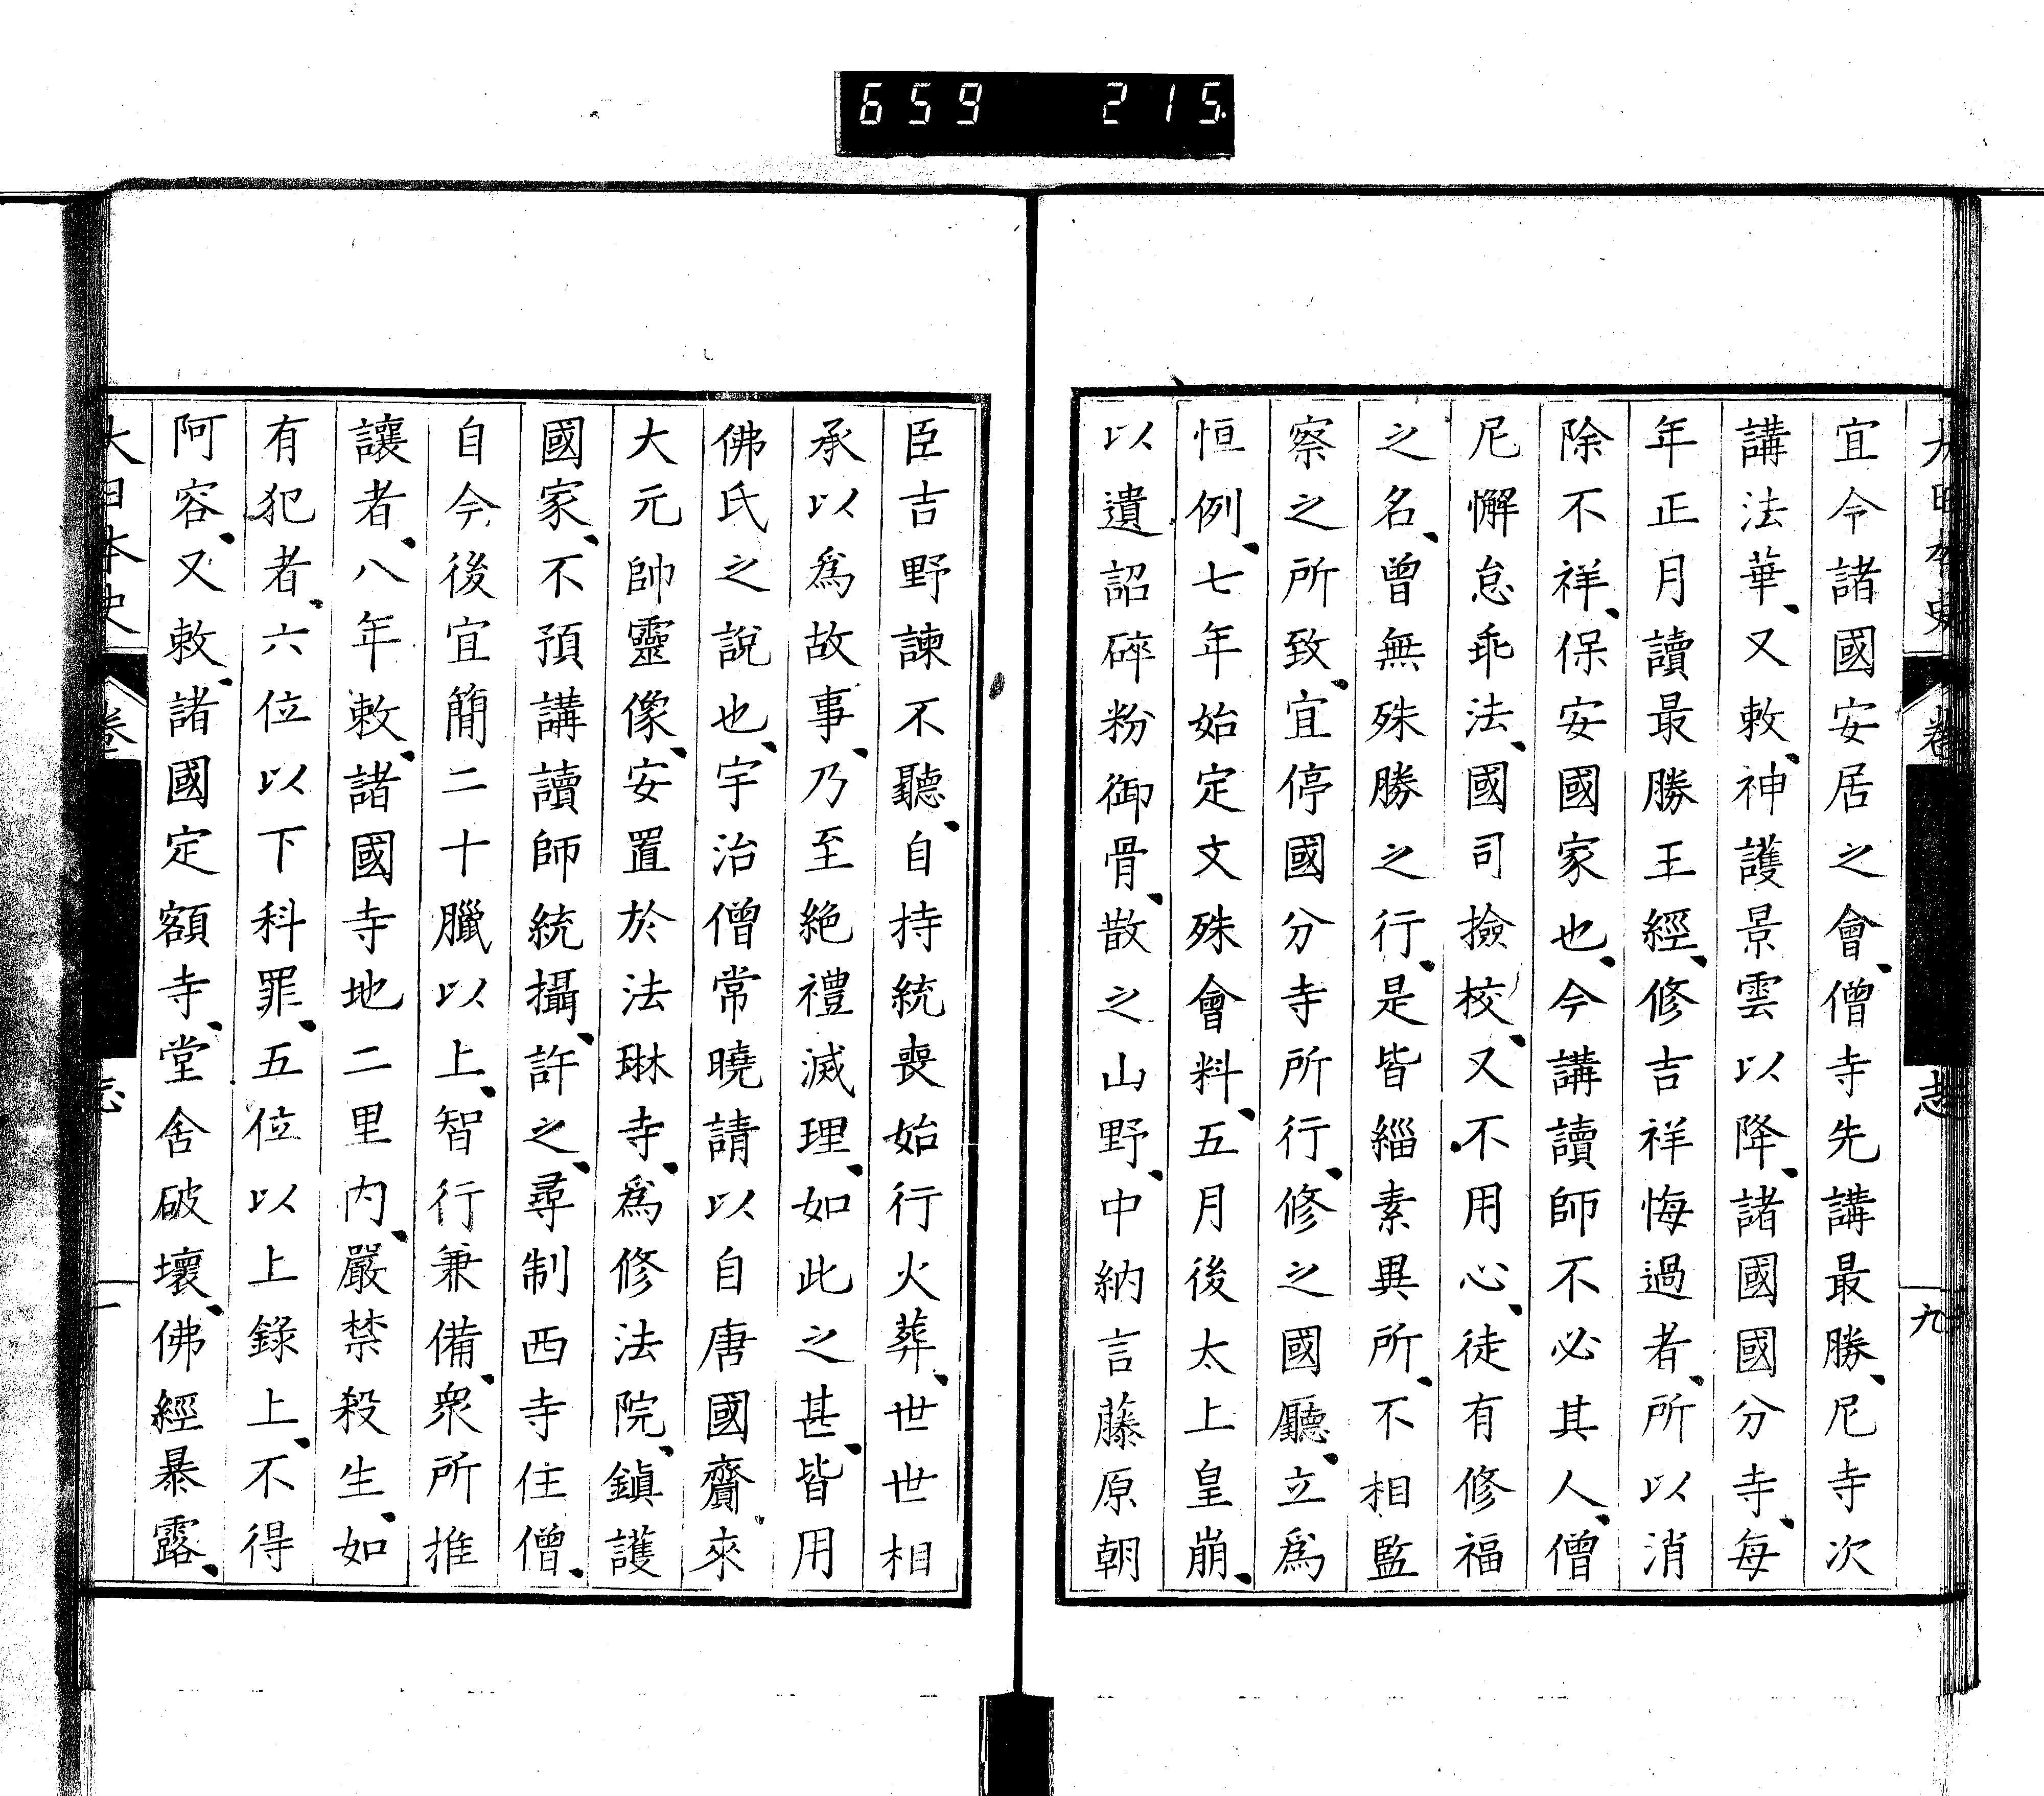 659 215
大日本史 卷 志 九
宜今諸國安居之會、僧寺先講最勝、尼寺次
講法華、又敕、神護景雲以降、諸國國分寺、每
年正月讀最勝王經、修吉祥悔過者、所以消
除不祥、保安國家也、今講讀師不必其人、僧
尼懈怠乖法、國司撿校、又不用心、徒有修福
之名、曾無殊勝之行、是皆緇素異所、不相監
察之所致、宜停國分寺所行、修之國廳、立爲
恒例、七年始定文殊會料、五月後太上皇崩、
以遺詔碎粉御骨、散之山野、中納言藤原朝
臣吉野諫不聽、自持統喪始行火葬、世世相
承以爲故事、乃至絶禮滅理、如此之甚、皆用
佛氏之說也、宇治僧常曉請以自唐國齎來
大元帥靈像、安置於法琳寺、爲修法院、鎭護
國家、不預講讀師統攝、許之、尋制西寺住僧、
自今後宜簡二十臈以上、智行兼備、衆所推
讓者、八年敕、諸國寺地二里內、嚴禁殺生、如
有犯者、六位以下科罪、五位以上錄上、不得
阿容、又敕、諸國定額寺、堂舍破壞、佛經暴露、
大日本史 卷 志